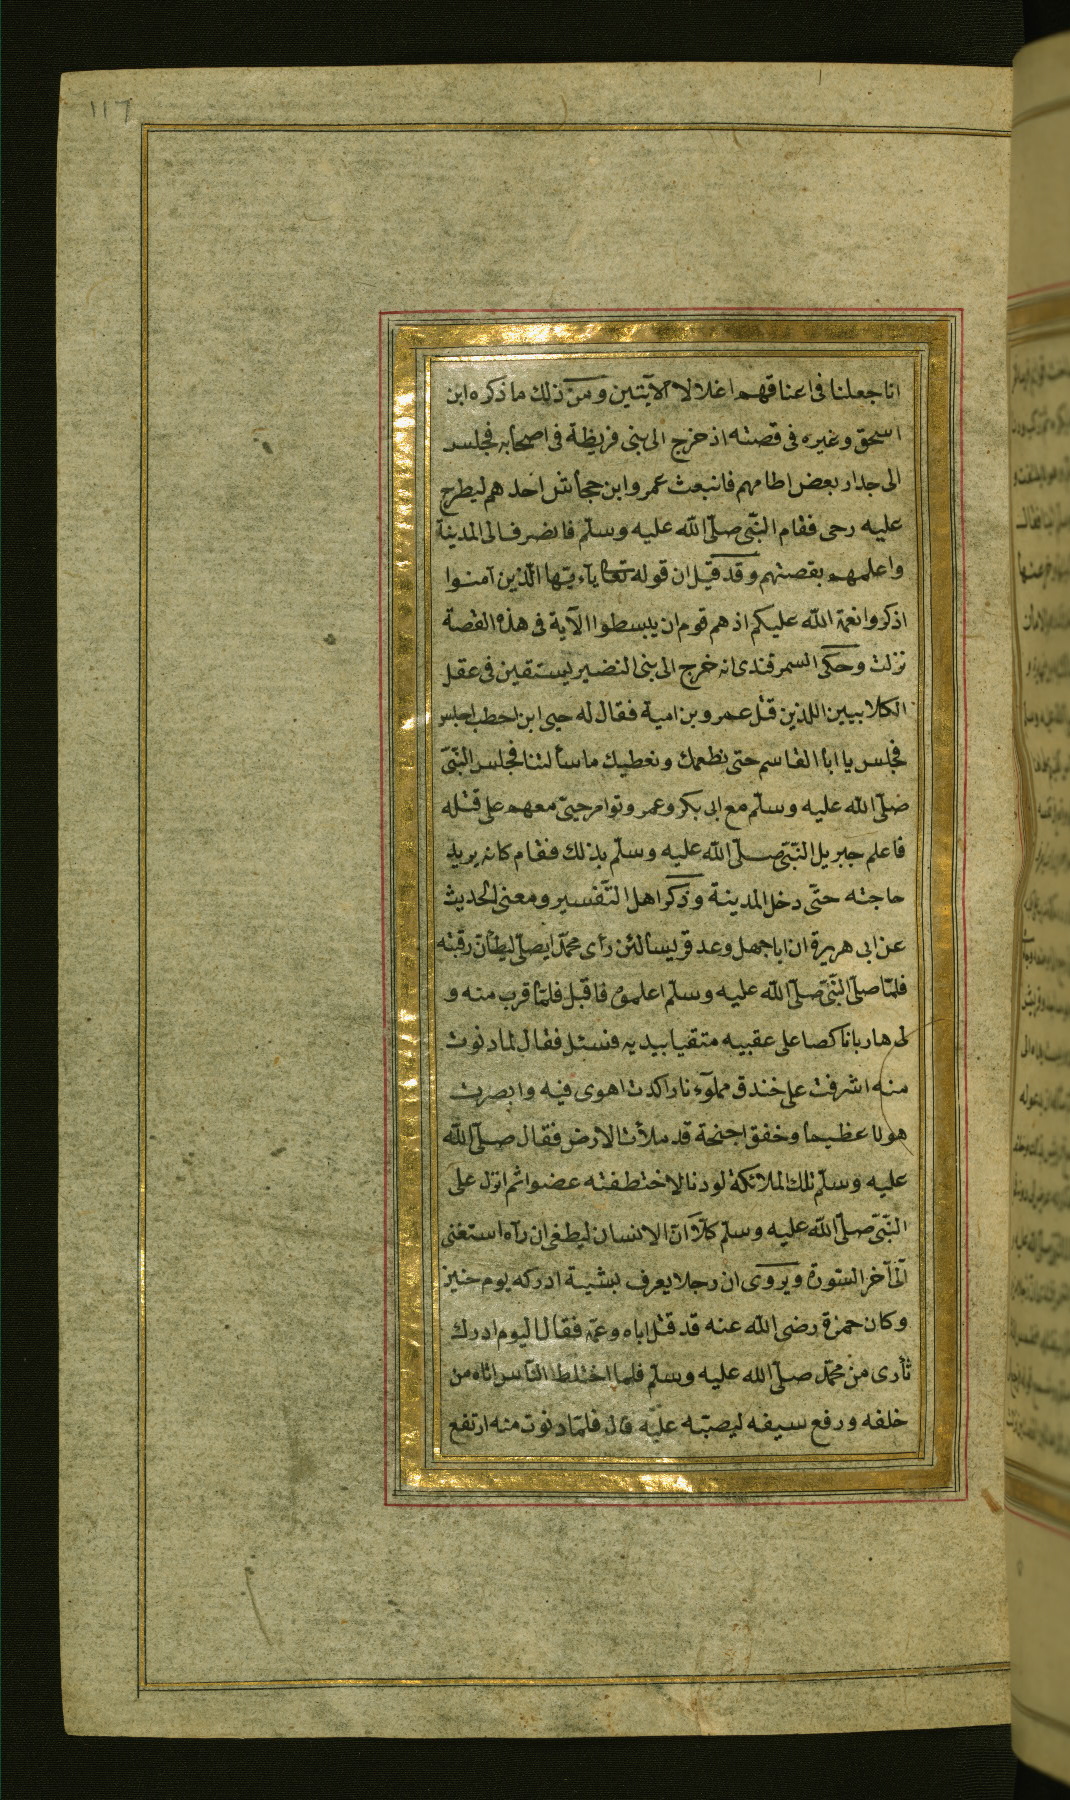 117
انا جعلنا فى اعناقهم اغلالا الآيتين ومن ذلك ما ذكره ابن
اسحق وغيره فى قصته اذ خرج الى بنى قريظة فى اصحابه فجلس
الى جدار بعض اطامهم فانبعث عمرو ابن جحاش احدهم ليطرح
عليه رحى فقام النبّى صلّى الله عليه وسلّم فانصرف الى المدينة
واعلمهم بقصتهم وقد قيل ان قوله تعا يآءيّها الّذين آمنوا
اذكروا نعمة الله عليكم اذ هم قوم ان يبسطوا الآية فى هذه القصة
نزلت وحكى السمرقندى انه خرج الى بنى النضير يستقين فى عقل
الكلابيين اللذين قتل عمرو بن امية فقال له حيى ابن اخطب اجلس
فجلس يا ابا القاسم حتى نطعمك ونعطيك ما سألتنا فجلس النّبىّ
صلّى الله عليه وسلّم مع ابى بكر وعمر وتوامر حيىّ معهم على قتله
فاعلم جبريل النّبّى صلّى الله عليه وسلّم بذلك فقام كانه يريد
حاجته حتّى دخل المدينة وذكر اهل التّفسير ومعنى الحديث
عن ابى هريرة ان ابا جهل وعد قريسا لئن رأى محمّدا يصلّى ليطأن رقبته
فلمّا صلّى النّبّى صلّى الله عليه وسلّم اعلموه فاقبل فلمّا قرب منه و
لى هاربا ناكصا على عقبيه متقيا بيديه فسئل فقال لما دنوت
منه اشرفت على خندق مملوّء نارا كدت اهوى فيه وابصرت
هولا عظيما وخفق اجنحة قد ملأت الارض فقال صلّى الله
عليه وسلّم تلك الملائكة لو دنا لاختطفته عضوا ثم انزل على
النّبّى صلّى الله عليه وسلّم كلّا انّ الانسان ليطغى ان رآه استغنى
الى آخر السّورة ويروى ان رجلا يعرف بشيبة ادركه يوم حنيز
وكان حمزة رضى الله عنه قد قتل اباه وعمّه فقال اليوم ادرك
ثأرى من محمّد صلّى الله عليه وسلّم فلما اختلط النّاس اتاه من
خلفه ورفع سيفه ليصبّه عليه قال فلمّا دنوت منه ارتفع